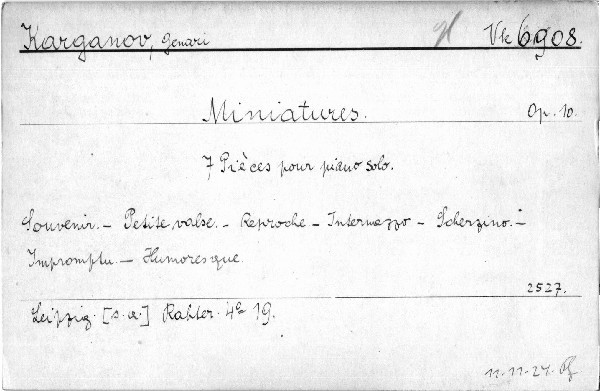 Karganov, Genari Vk 6908.
Miniatures. Op. 10.
7 Pièces pour piano solo.
Souvenir. — Petite valse. — Reproche — Intermezzo — Scherzino. —
Impromptu. — Humoresque.
2527.
Leipzig. [s. a.] Rahter. 4° 19.
11-11-27.